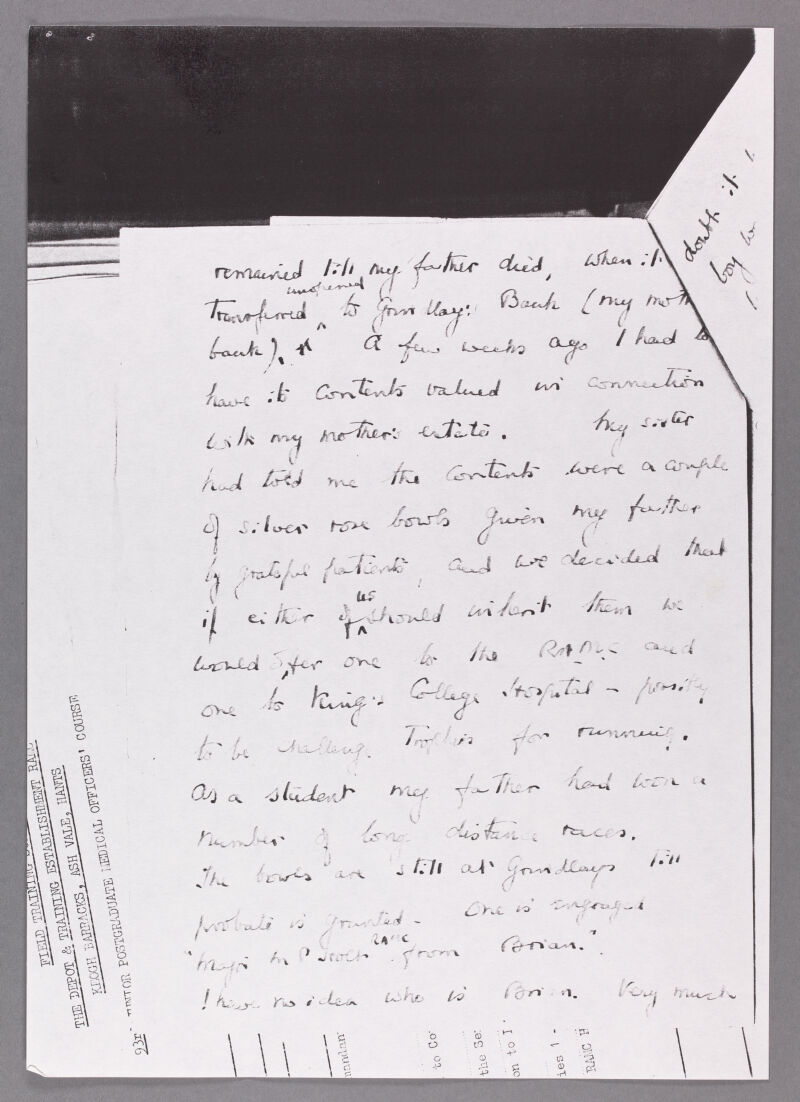 remained till my father died, when it
transferred unopened to Grindlay's Bank (my moth
bank). A few weeks ago I had to
have its contents valued in connection
with my mother's estate. My sister
had told me the contents were a couple
of silver rose bowls given my father
by grateful patients, and we decided that
if either of us should inherit them we
would offer one to the RAMC and
one to King's College Hospital – possibly
to be challenge Trophies for running.
As a student my father had won a
number of long distance races.
The bowls are still at Grindlays till
probate is granted – One is engraved
"Major M P RAMC from Brian."
I have no idea who is Brian. Very much
doubt it
boy
FIELD TRAINING
THE DEPOT & TRAINING ESTABLISHMENT RAMC
KEOGH BARRACKS, ASH VALE, HANTS
POSTGRADUATE MEDICAL OFFICERS' COURSE
to Co
the Se
on to I
ies 1 -
RAMC H